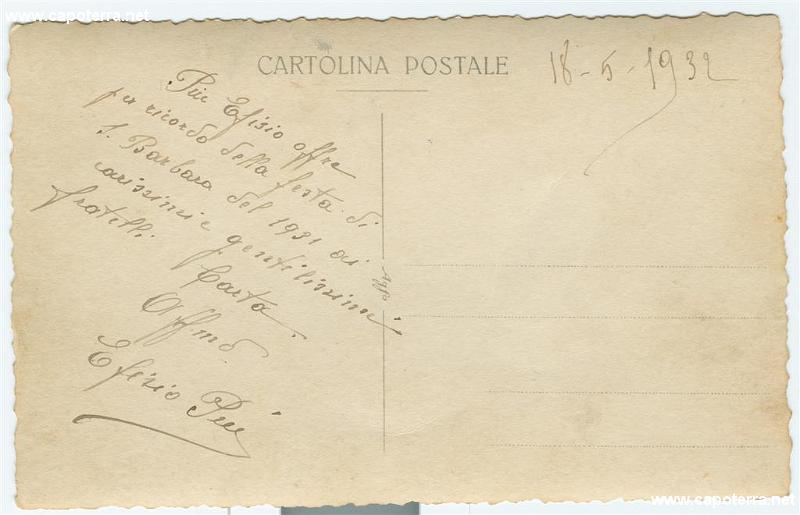 www.capoterra.net
CARTOLINA POSTALE
18-5-1932
Piu Efisio offre
per ricordo della festa di
S. Barbara del 1931 ai
carissimi e gentilissimi
fratelli Carta.
Affmo.
Efisio Piu
www.capoterra.net